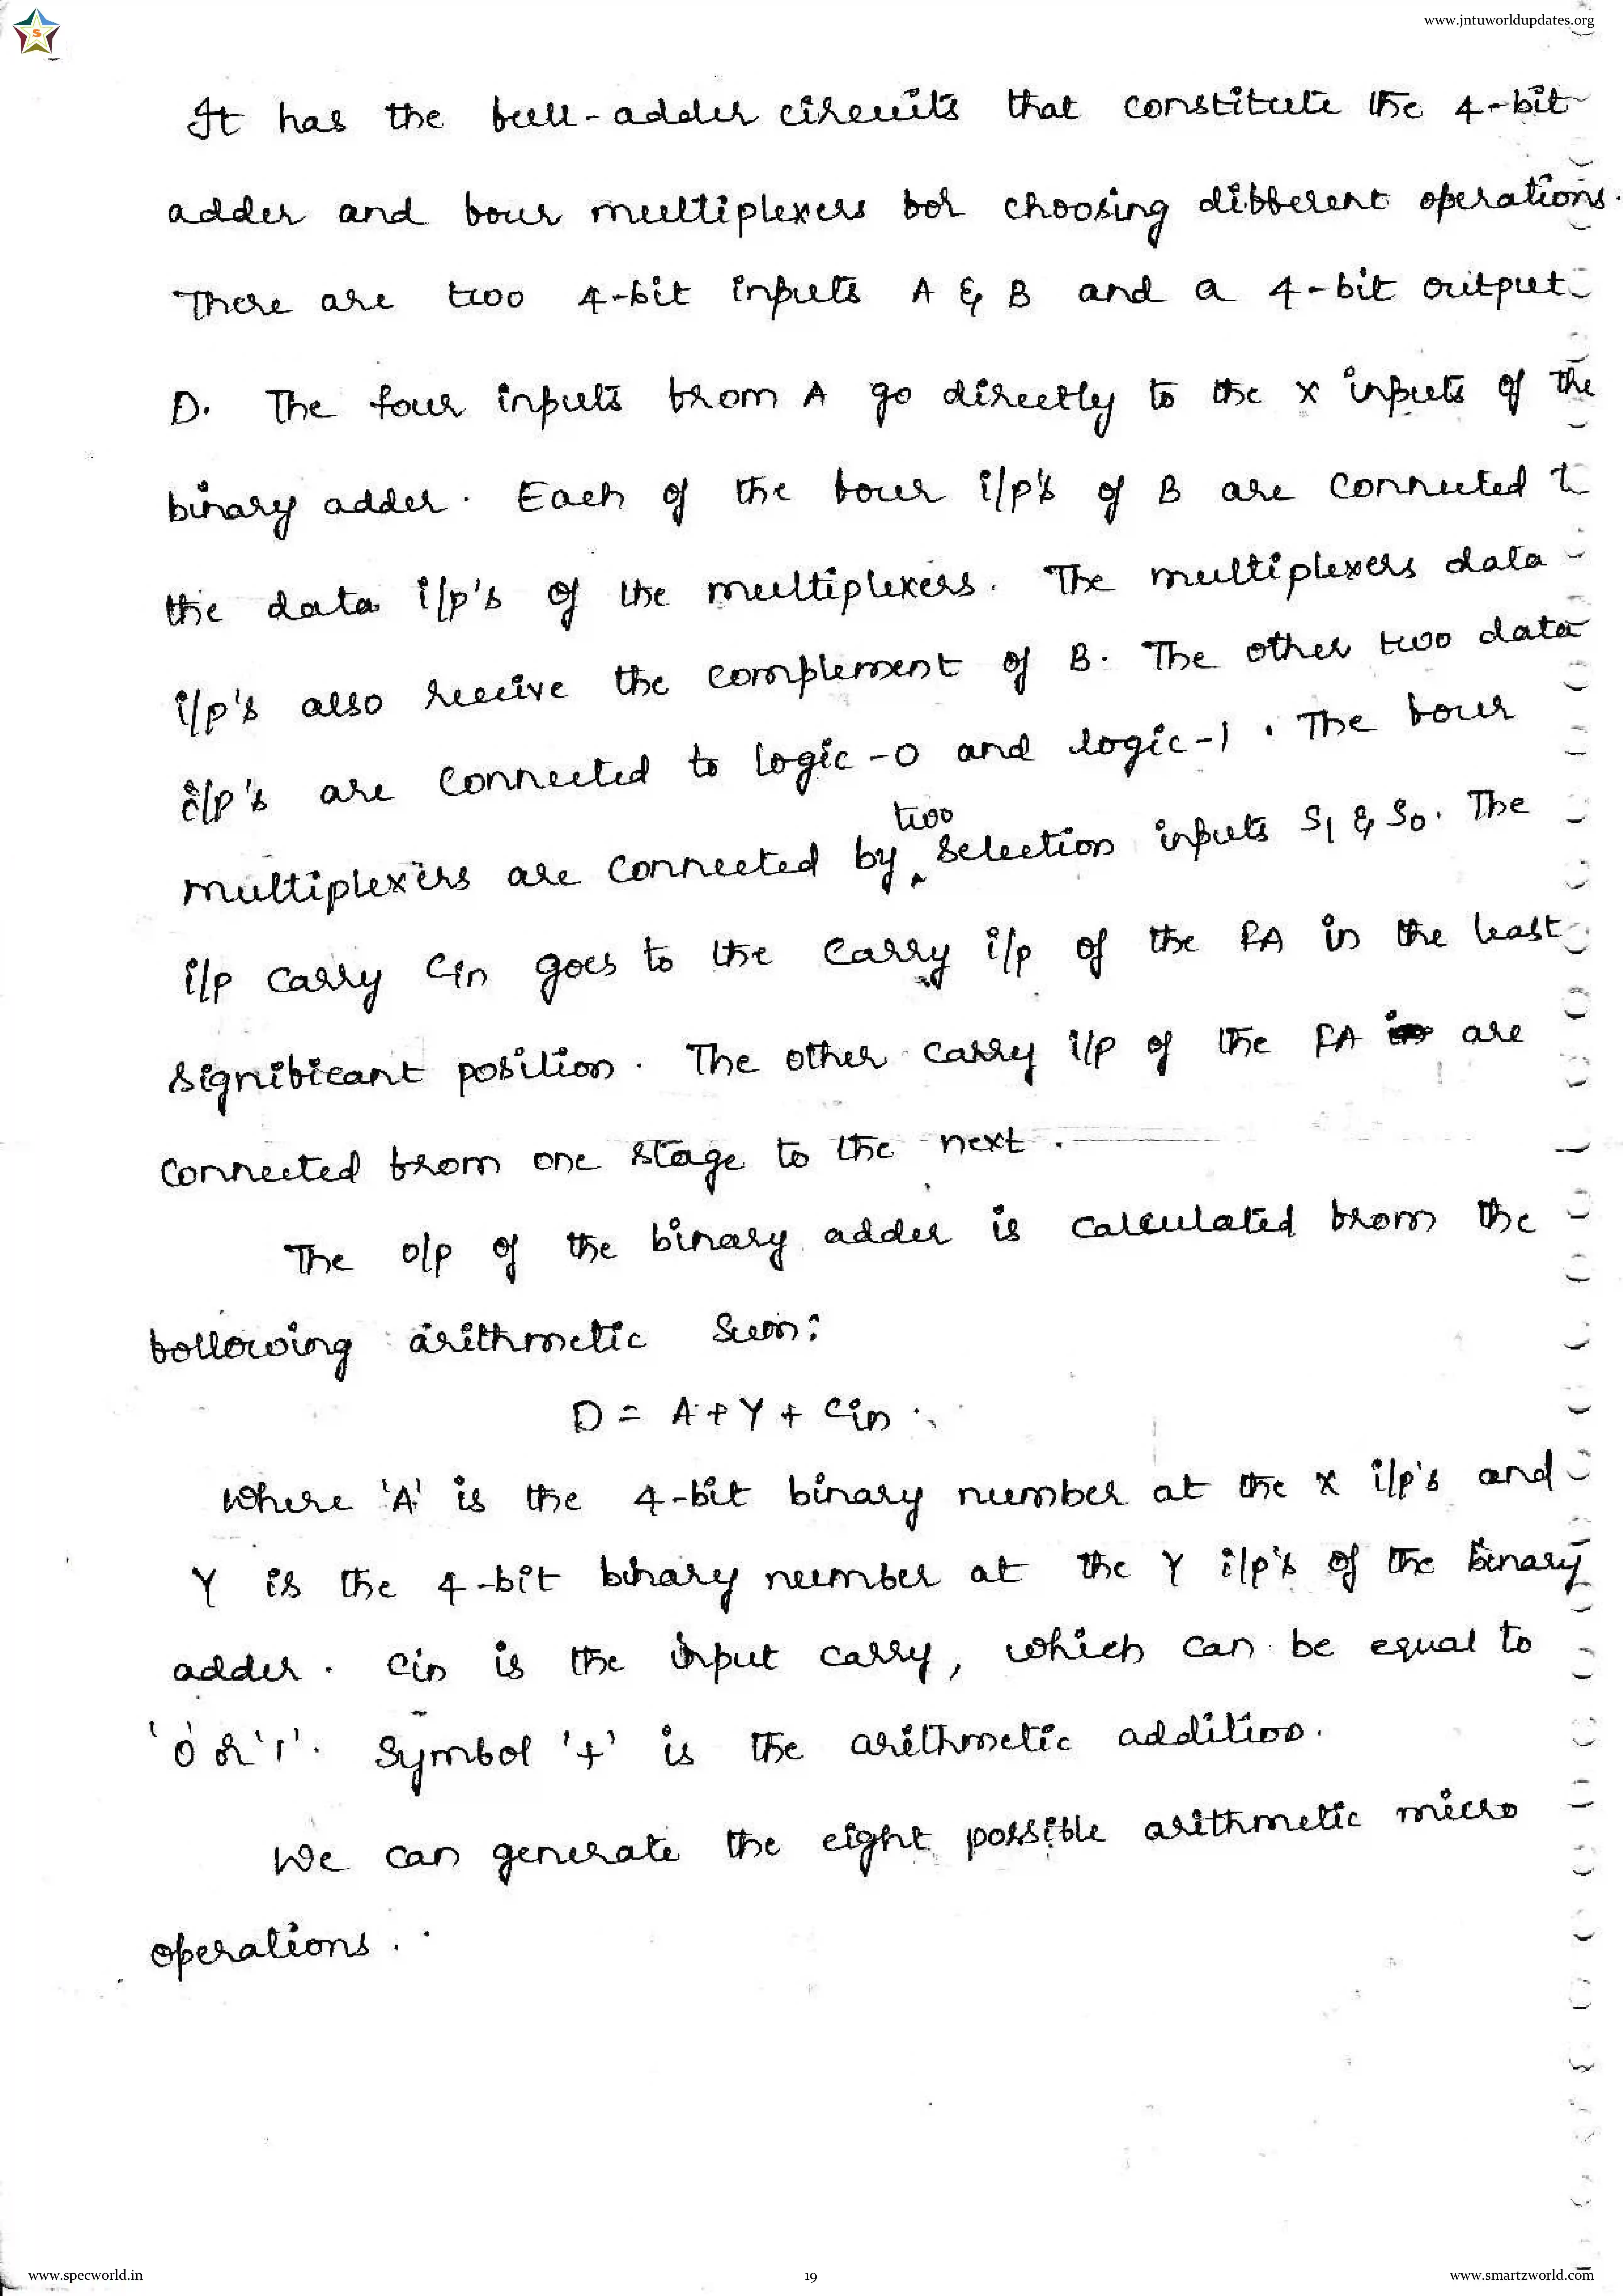 www.jntuworldupdates.org
S
It has the full-adder circuits that constitute the 4-bit
adder and four multiplexers for choosing different operations.
There are two 4-bit inputs A & B and a 4-bit output
D. The four inputs from A go directly to the X inputs of the
binary adder. Each of the four i/p's of B are connected to
the data i/p's of the multiplexers. The multiplexers data
i/p's also receive the complement of B. The other two data
i/p's are connected to logic-0 and logic-1. The four
multiplexers are connected by two selection inputs S1 & S0. The
i/p carry Cin goes to the carry i/p of the FA in the least
significant position. The other carry i/p of the FA are
connected from one stage to the next.
The o/p of the binary adder is calculated from the
following arithmetic sum:
D = A + Y + Cin.
Where 'A' is the 4-bit binary number at the X i/p's and
Y is the 4-bit binary number at the Y i/p's of the binary
adder. Cin is the input carry, which can be equal to
'0' or '1'. Symbol '+' is the arithmetic addition.
We can generate the eight possible arithmetic micro
operations.
www.specworld.in
19
www.smartzworld.com